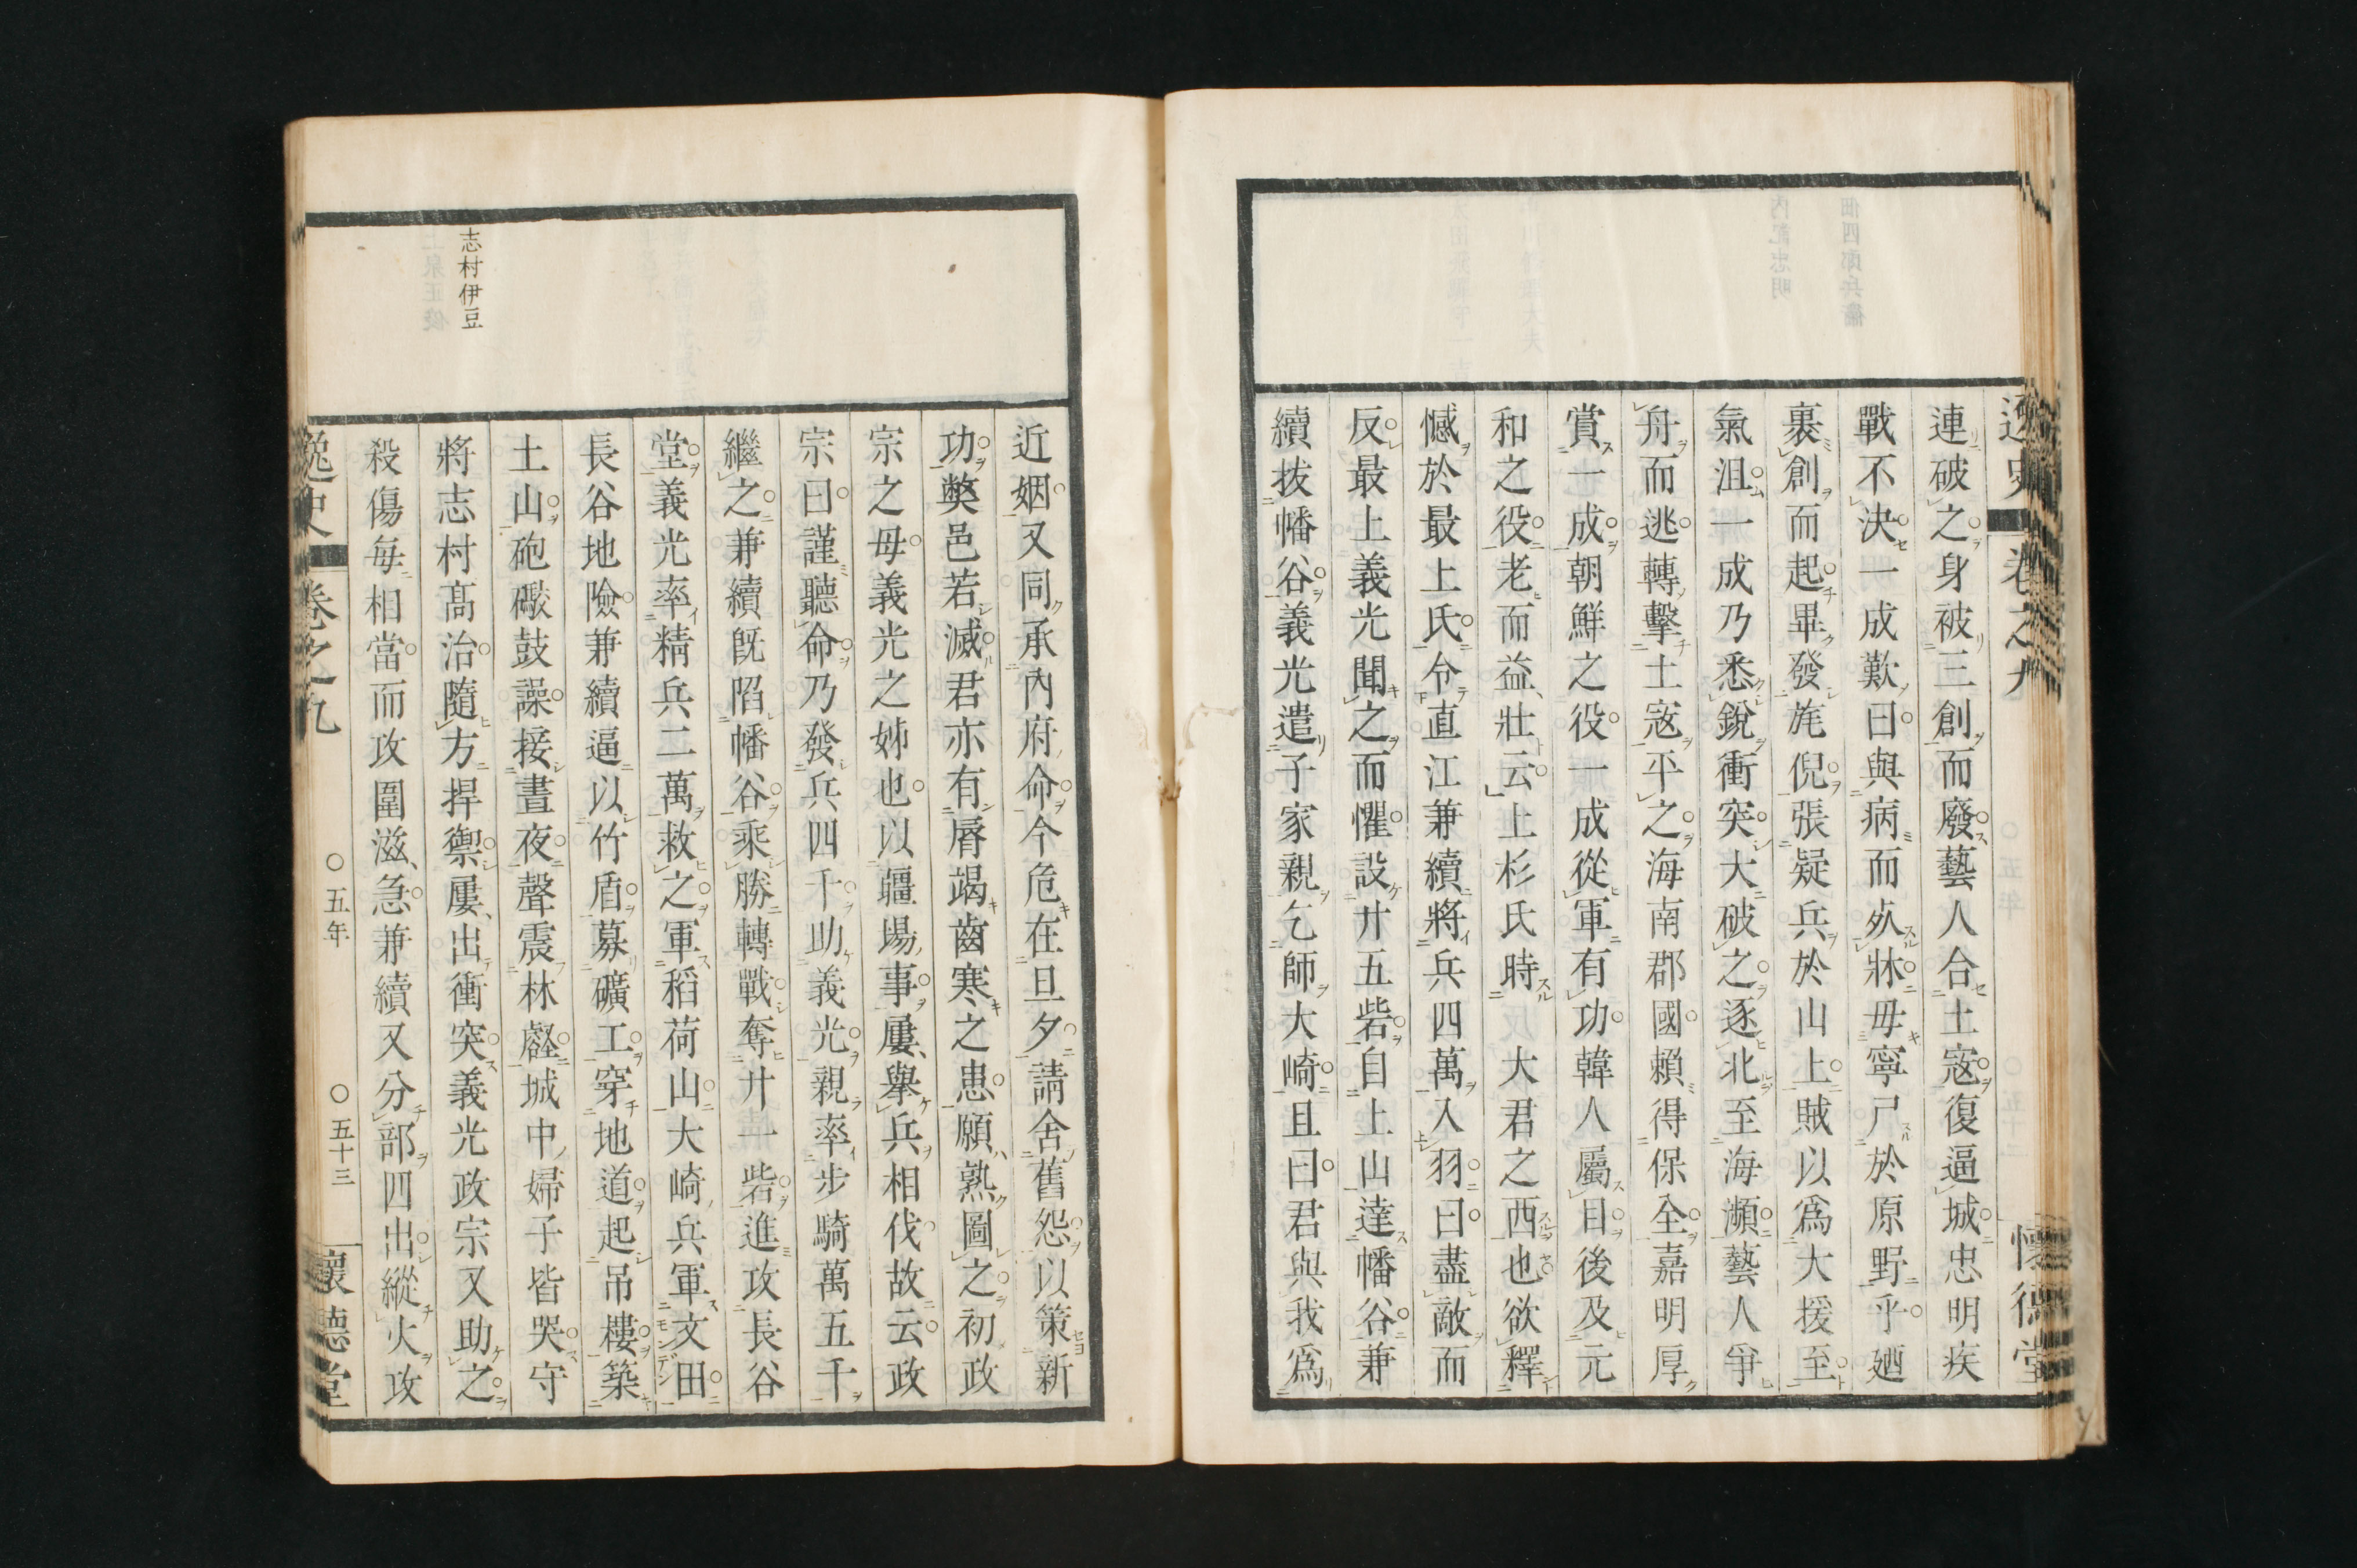 逸史 卷之九 懷德堂
連破之身被三創而廢藝人合土寇復逼城忠明疾
戰不決一成歎曰與病而死牀毋寧尸於原野乎廼
裹創而起畢發旄倪張疑兵於山上賊以爲大援至
氣沮一成乃悉銳衝突大破之逐北至海瀕藝人爭
舟而逃轉擊土寇平之海南郡國賴得保全嘉明厚
賞一成朝鮮之役一成從軍有功韓人屬目後及元
和之役老而益壯云上杉氏時 大君之西也欲釋
憾於最上氏令直江兼續將兵四萬入羽曰盡敵而
反最上義光聞之而懼設廿五砦自上山達幡谷兼
續拔幡谷義光遣子家親乞師大崎且曰君與我爲
近姻又同承內府命今危在旦夕請舍舊怨以策新
功獘邑若滅君亦有脣竭齒寒之患願熟圖之初政
宗之母義光之姊也以疆場事屢擧兵相伐故云政
宗曰謹聽命乃發兵四千助義光親率步騎萬五千
繼之兼續既陷幡谷乘勝轉戰奪廿一砦進攻長谷
堂義光率精兵二萬救之軍稻荷山大崎兵軍文田
長谷地險兼續逼以竹盾募礦工穿地道起吊樓築
土山砲礮鼓譟接晝夜聲震林壑城中婦子皆哭守
志村伊豆
將志村高治隨方捍禦屢出衝突義光政宗又助之
殺傷每相當而攻圍滋急兼續又分部四出縱火攻
逸史 卷之九 ○五年 ○五十三 懷德堂